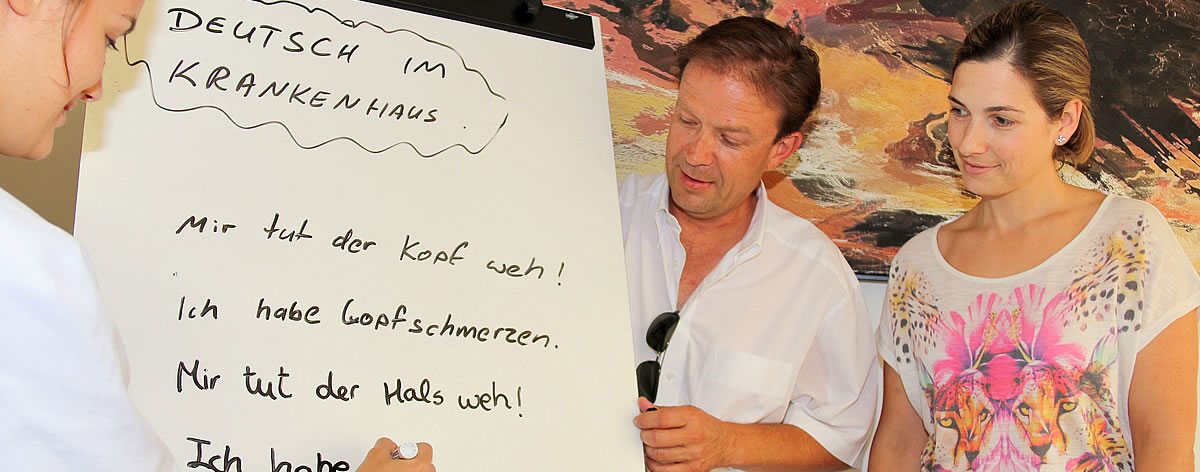 DEUTSCH IM
KRANKENHAUS.
Mir tut der Kopf weh!
Ich habe Kopfschmerzen.
Mir tut der Hals weh!
Ich habe